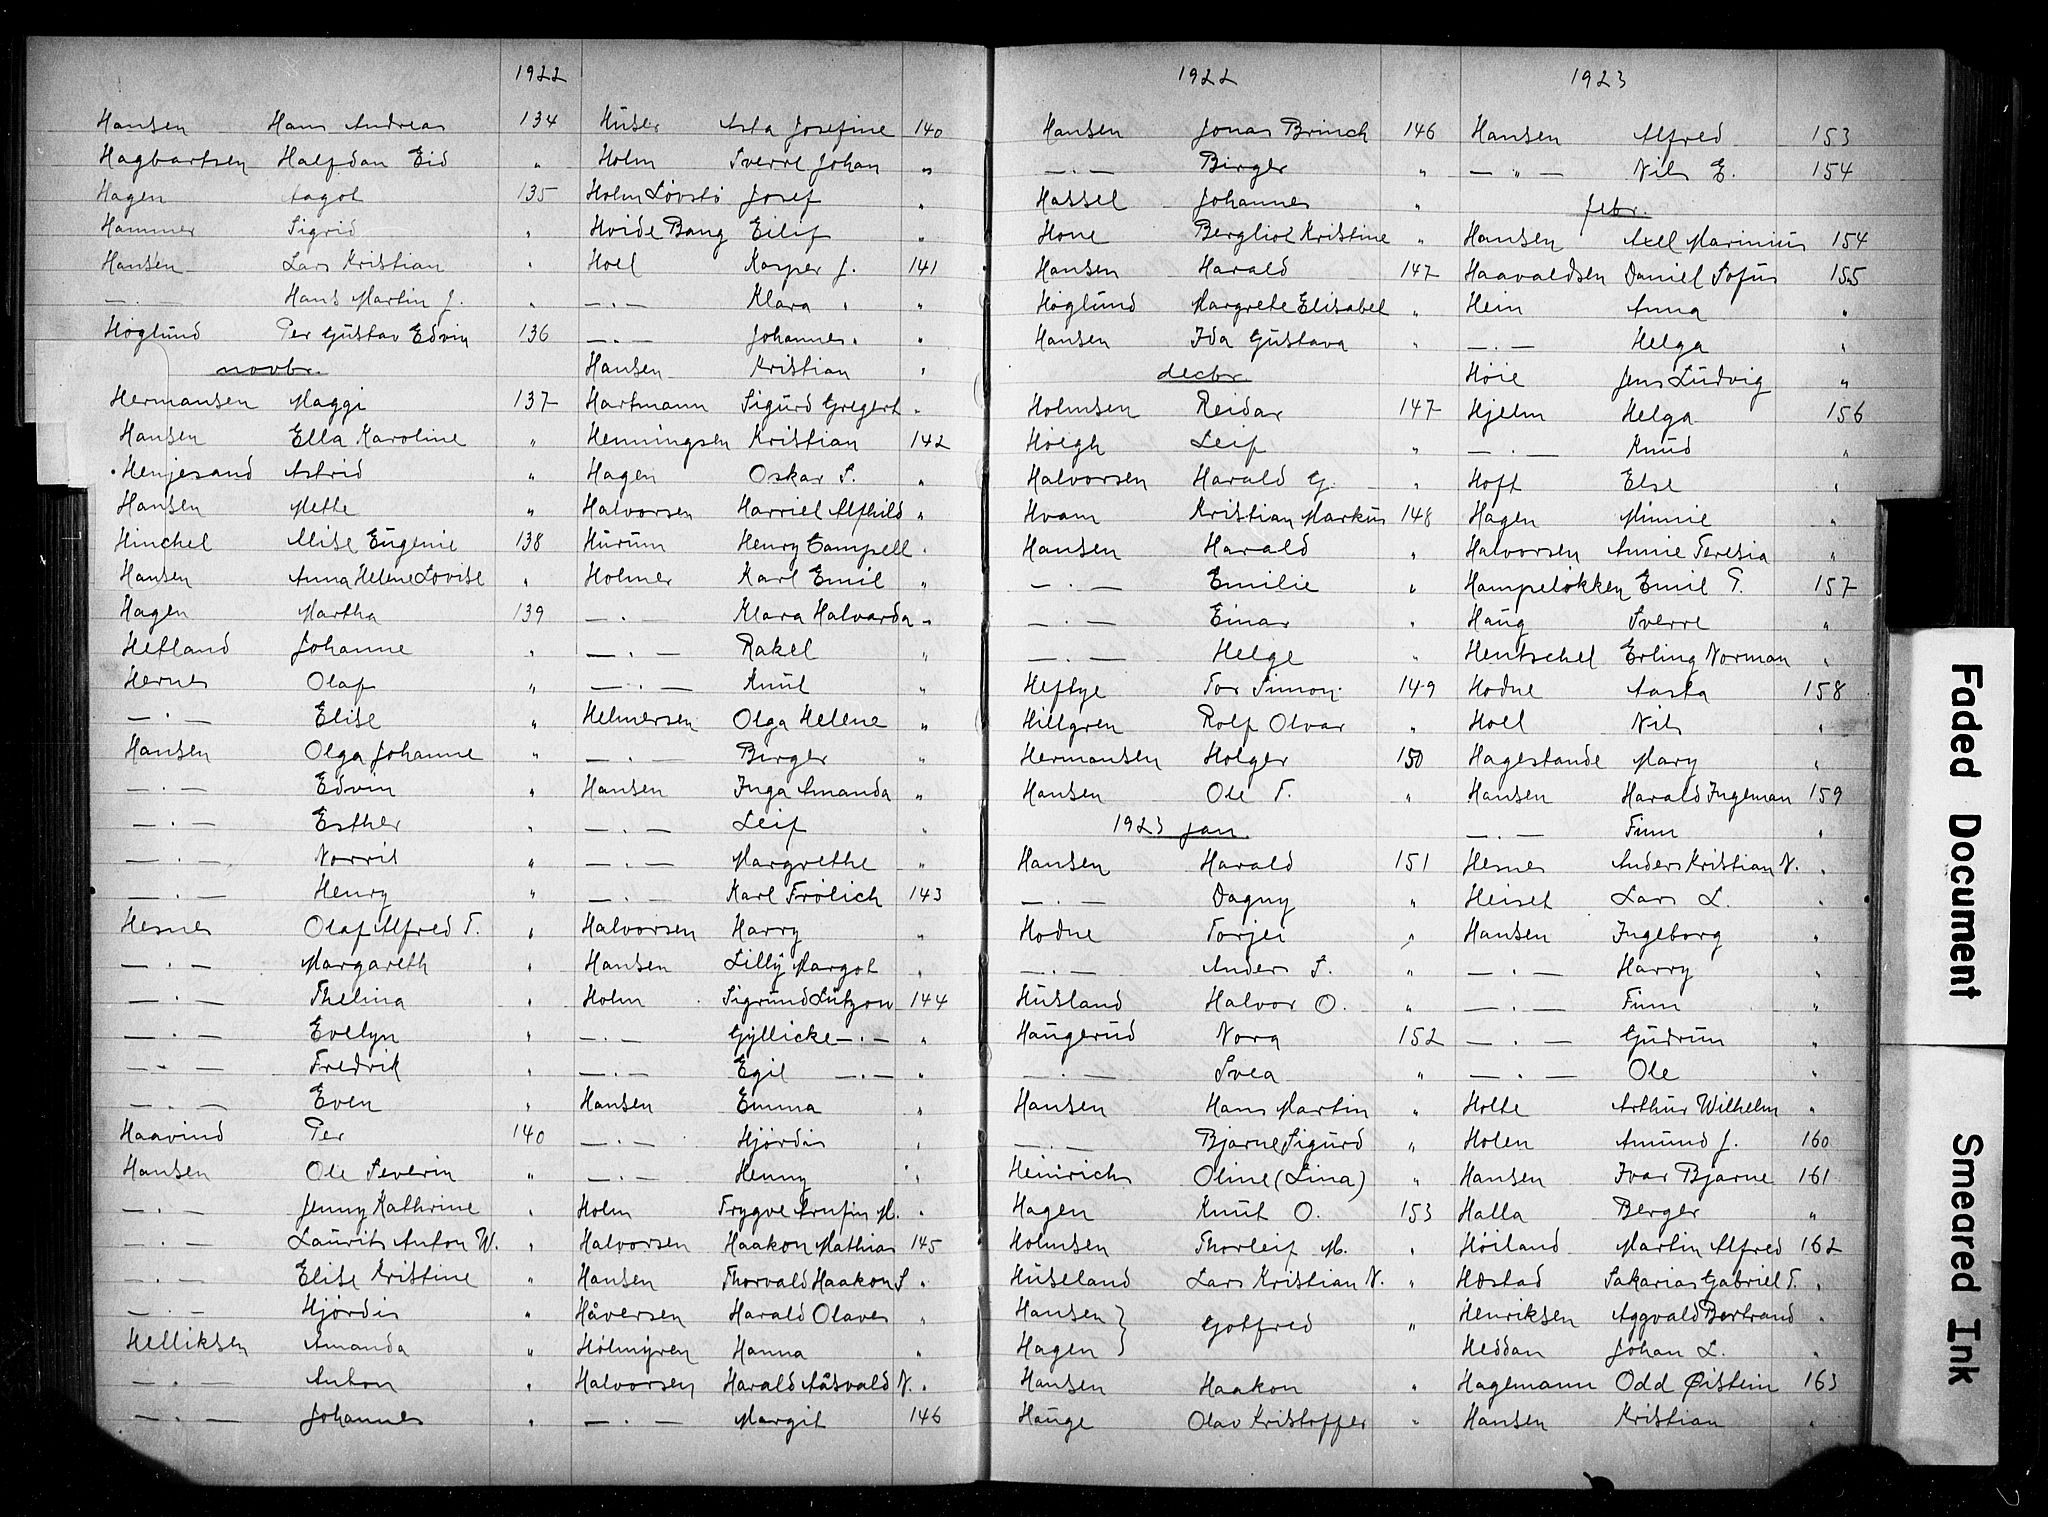 1922
Hansen Hans Andreas 134
Hagbartsen Halfdan Eid "
Hagen Aagot 135
Hammer Sigrid "
Hansen Lars Kristian "
— . — Hans Martin J. "
Høglund Per Gustav Edvin 136
novbr.
Hermansen Maggi 137
Hansen Ella Karoline "
Henjesand Astrid "
Hansen Mette "
Hinchel Alise Eugenie 138
Hansen Anna Helene Lovise "
Hagen Martha 139
Hetland Johanne "
Hernes Olaf "
— . — Elise "
Hansen Olga Johanne "
— . — Edvin "
— . — Esther "
— . — Norrit "
— . — Henry "
Hesnes Olaf Alfred T. "
— . — Margareth "
— . — Thelina "
— . — Evelyn "
— . — Fredrik "
— . — Even "
Haavind Per 140
Hansen Ole Severin "
— . — Jenny Kathrine "
— . — Laurits Anton W. "
— . — Elise Kristine "
— . — Hjørdis "
Helliksen Amanda "
— . — Anton "
— . — Johannes "
Huser Asta Josefine 140
Holm Sverre Johan "
Holm Løvstø Josef "
Hvide Bang Eilif "
Holl Kasper J. 141
— . — Klara " "
— . — Johannes " "
Hansen Kristian "
Hartmann Sigurd Gregert "
Henningsen Kristian 142
Hagen Oskar S. "
Halvorsen Harriet Alfhild "
Hurum Henry Campell "
Holmer Karl Emil "
— . — Klara Halvarda "
— . — Rakel "
— . — Knut "
Helmersen Olga Helene "
— . — Birger "
Hansen Inga Amanda "
— . — Leif "
— . — Margrethe "
— . — Karl Frölich 143
Halvorsen Harry "
Hansen Lilly Margot "
Holm Sigrund Lützow 144
— . — Gyllicke — . — "
— . — Egil — . — "
Hansen Emma "
— . — Hjördis "
— . — Henny "
Holm Trygve Arnfin M. "
Halvorsen Haakon Mathias 145
Hansen Thorvald Haakon S "
Håversen Harald Olaves "
Holmyren Hanna "
Halvorsen Harald Aasvald N. "
— . — Margit 146
1922
Hansen Jonas Brinch 146
— . — Birger "
Hassel Johannes "
Hone Bergliot Kristine "
Hansen Harald 147
Høglund Margrete Elisabet "
Hansen Ida Gustava "
decbr.
Holmsen Reidar 147
Høegh Leif "
Halvorsen Harald G. "
Hvam Kristian Markus 148
Hansen Harald "
— . — Emilie "
— . — Einar "
— . — Helge "
Heftye Tor Simon 149
Hillgren Rolf Olvar "
Hermansen Holger 150
Hansen Ole T. "
1923 jan.
Hansen Harald 151
— . — Dagny "
Hodne Torjei "
— . — Anders S. "
Husland Halvor O. "
Haugerud Nora 152
— . — Svea "
Hansen Hans Martin "
— . — Bjarne Sigurd "
Heinrichs Oline (Lina) "
Hagen Knut O. 153
Holmsen Thorleif M. "
Huseland Lars Kristian N. "
Hansen } Gotfred "
Hagen }
Hansen Haakon "
Hauge Olav Kristoffer "
1923
Hansen Alfred 153
— " — Nils E. 154
febr.
Hansen Axel Marinius 154
Haavaldsen Daniel Sofus 155
Hein Anna "
— . — Helga "
Høie Jens Ludvig "
Hjelm Helga 156
— . — Knud "
Hoft Else "
Hagen Minnie "
Halvorsen Annie Teresia "
Hampeløkken Emil G. 157
Haug Sverre "
Hentschel Erling Norman "
Hodne Aasta 158
Holl Nils "
Hagestande Mary "
Hansen Harald Ingeman 159
— . — Finn "
Hesnes Anders Kristian N. "
Heiset Lars L. "
Hansen Ingeborg "
— . — Harry "
— . — Finn "
— . — Gudrun "
— . — Ole "
Holte Arthur Wilhelm "
Holen Amund J. 160
Hansen Ivar Bjarne 161
Halla Berger "
Høiland Martin Alfred 162
Hæstad Sakarias Gabriel T. "
Henriksen Aggvald Bertrand "
Heddan Johan L. "
Hagemann Odd Øistein 163
Hansen Kristian "
Faded Document
Smeared Ink